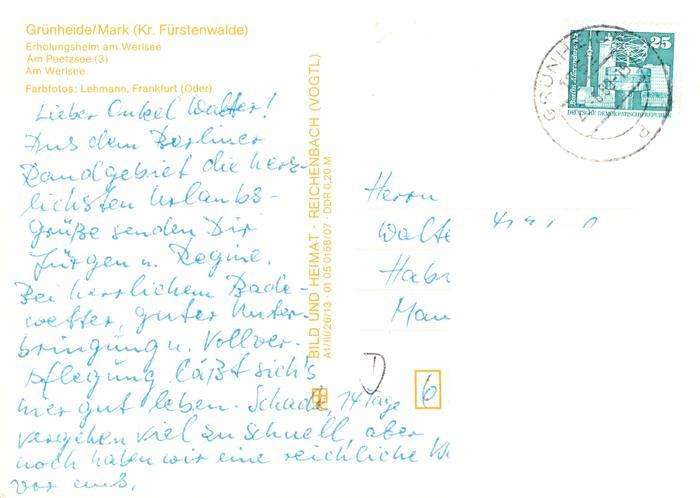 Grünheide/Mark (Kr. Fürstenwalde)
Erholungsheim am Werlsee
Am Peetzsee (3)
Am Werlsee
Farbfotos: Lehmann, Frankfurt (Oder)
Lieber Onkel Walter!
Aus dem Berliner
Randgebiet die herz-
lichsten Urlaubs-
grüße senden Dir
Jürgen u. Regine.
Bei herrlichem Bade-
wetter, guter Unter-
bringung u. Vollver-
pflegung läßt sich's
hier gut leben. Schade, 14 Tage
vergehen viel zu schnell, aber
noch haben wir eine reichliche
vor uns.
BILD UND HEIMAT · REICHENBACH (VOGTL)
A1/III/26/13 · 01 05 0158/07 · DDR 0,20 M
25
DEUTSCHE DEMOKRATISCHE REPUBLIK
GRÜNH
Herrn
Walte
Habi
Man
6